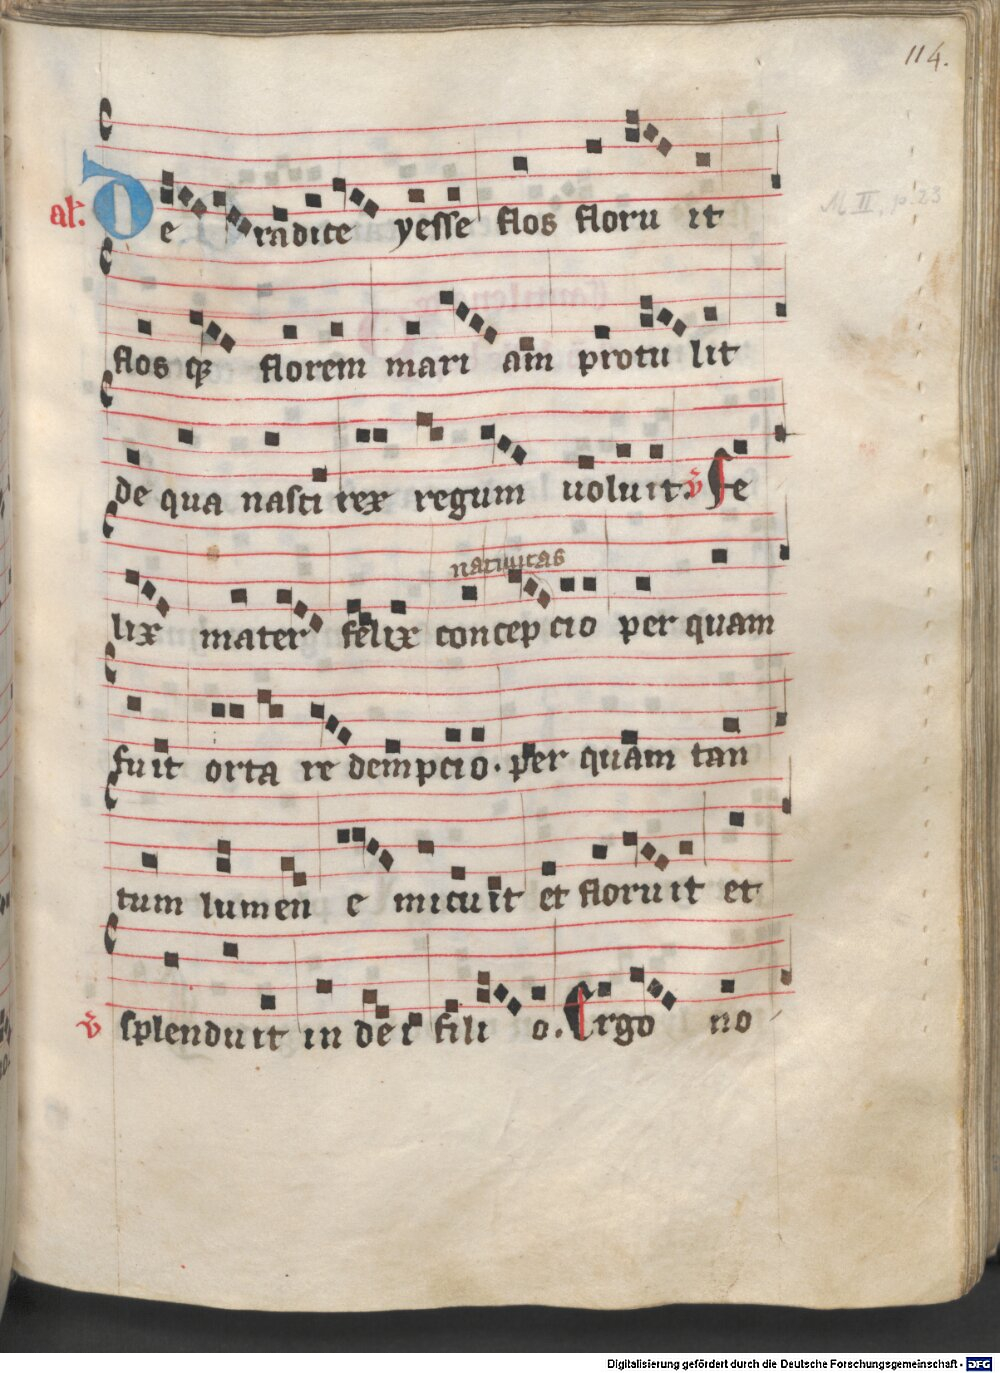 114.
M II, p. 23
al. De radite yesse flos floru it
flos q3 florem mari am protu lit
de qua nasci rex regum uoluit. v Fe
lix mater felix concepcio per quam
natiuitas
fuit orta re dempcio. per quam tan
tum lumen e micuit et floruit et
v splenduit in de i fili o. Ergo no
Digitalisierung gefördert durch die Deutsche Forschungsgemeinschaft - DFG